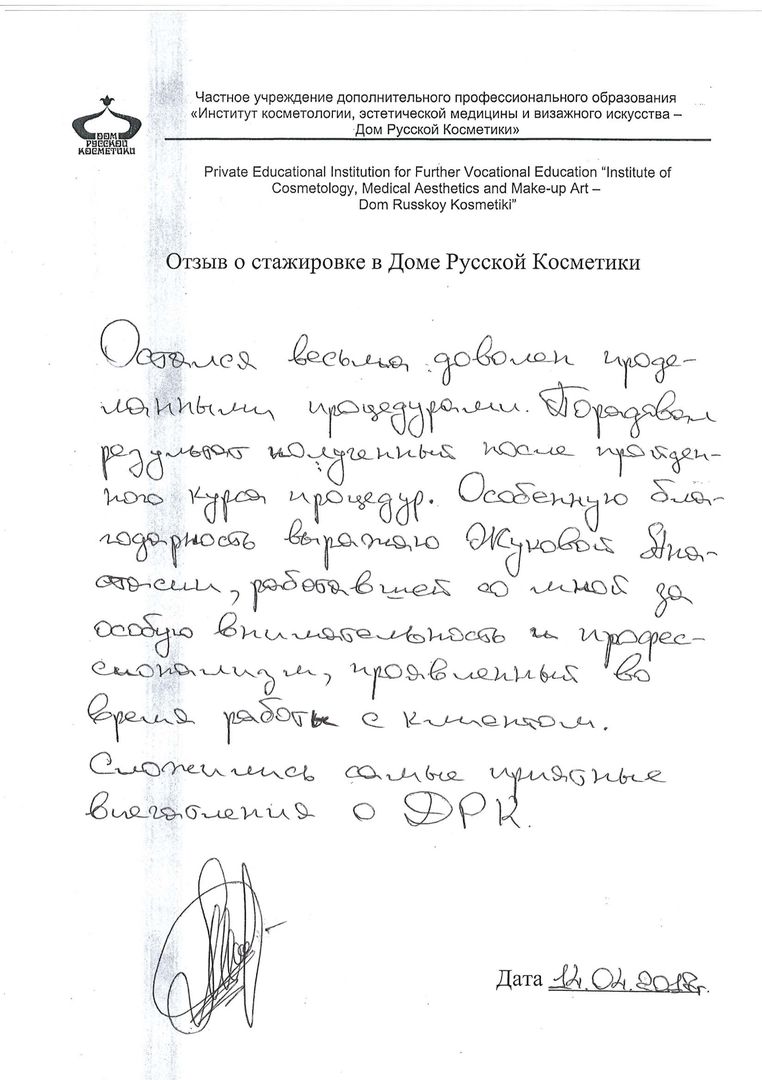 ДОМ
РУССКОЙ
КОСМЕТИКИ
Частное учреждение дополнительного профессионального образования
«Институт косметологии, эстетической медицины и визажного искусства –
Дом Русской Косметики»
Private Educational Institution for Further Vocational Education “Institute of
Cosmetology, Medical Aesthetics and Make-up Art –
Dom Russkoy Kosmetiki”
Отзыв о стажировке в Доме Русской Косметики
Остался весьма доволен проде-
ланными процедурами. Порадовал
результат полученный после пройден-
ного курса процедур. Особенную бла-
годарность выражаю Жуковой Ана-
стасии, работавшей со мной за
особую внимательность и профес-
сионализм, проявленный во
время работы с клиентом.
Сложились самые приятные
впечатления о ДРК.
Дата 12.04.2018г.